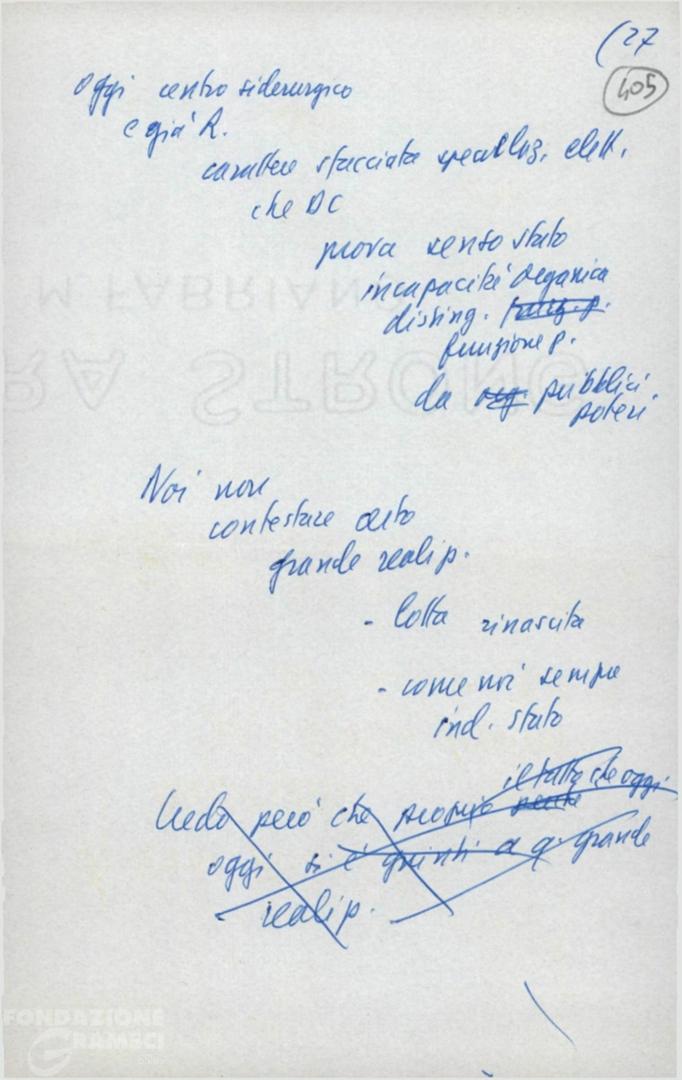 (27
405
Oggi centro siderurgico
e già R.
carattere sfacciata specullaz. elett.
che DC
prova senso stato
incapacità organica
dissing. funz. p.
funzione p.
da org. pubblici
poteri
Noi non
contestare certo
grande realip.
- lotta rinascita
- come noi sempre
ind. stato
il fatto che oggi
Credo però che proprio
oggi si è giunti a q. grande
realip.
FONDAZIONE
GRAMSCI
M FABRIANO
RA STRONG